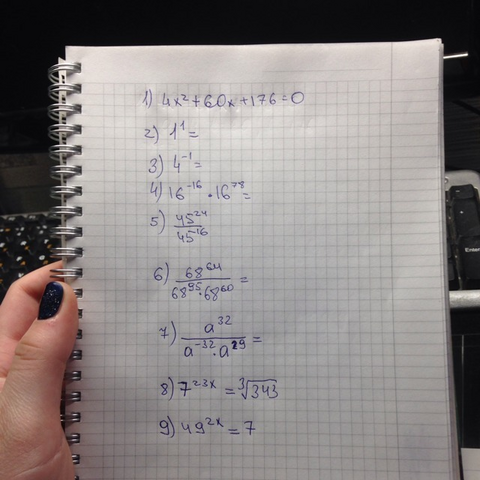 1) 4x² + 60x + 176 = 0
2) 1¹ =
3) 4⁻¹ =
4) 16⁻¹⁶ · 16⁷⁸ =
5) 45²⁴ / 45⁻¹⁶
6) 68⁶⁴ / 68⁹⁵ · 68⁶⁰ =
7) a³² / a⁻³² · a²⁹ =
8) 7²³ˣ = ∛343
9) 49²ˣ = 7
Enter